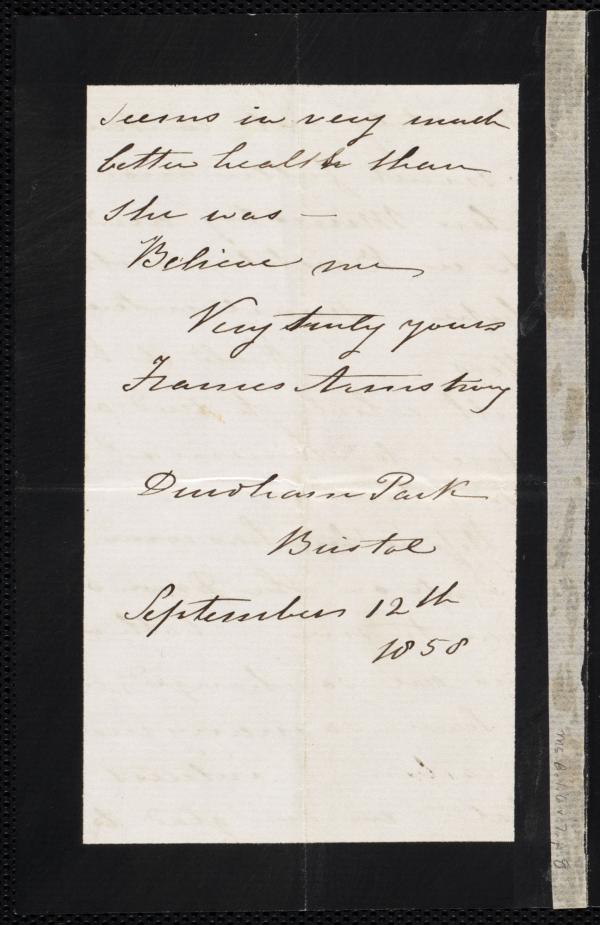 seems in very much
better health than
she was —
Believe me
Very truly yours
Frances Armstrong
Durdham Park
Bristol
September 12th
1858